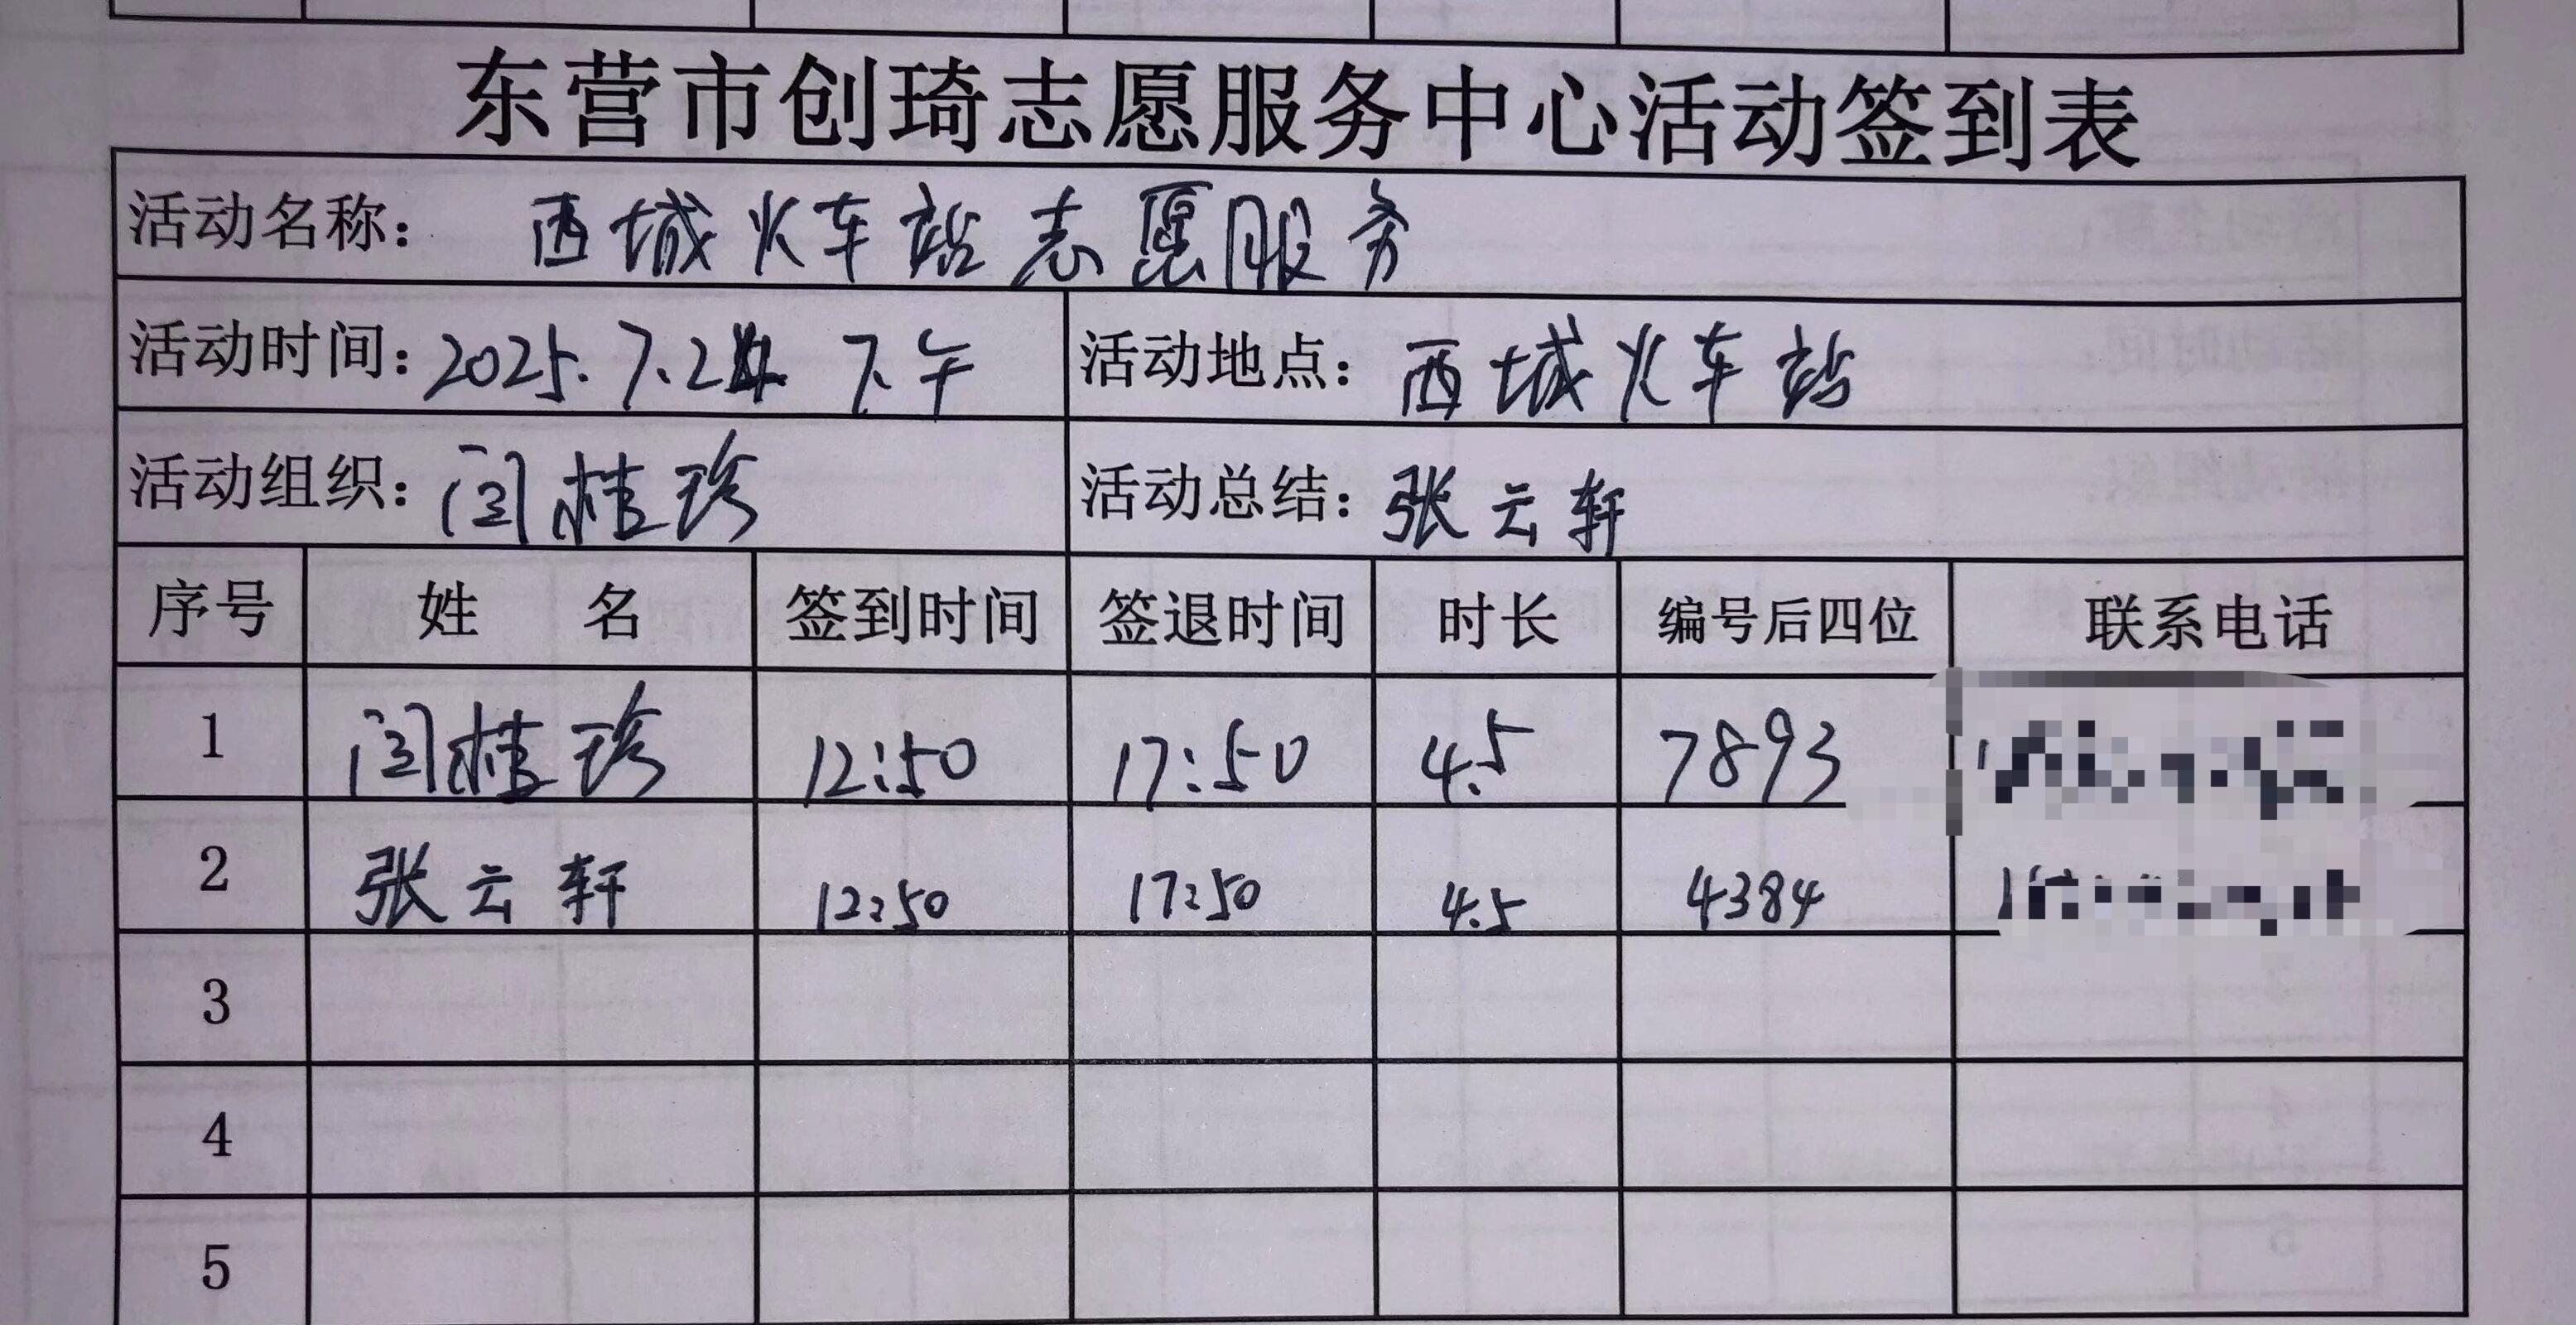 东营市创琦志愿服务中心活动签到表
活动名称： 西城火车站志愿服务
活动时间：2025.7.24 下午 活动地点：西城火车站
活动组织：闫桂珍 活动总结：张云轩
序号 姓 名 签到时间 签退时间 时长 编号后四位 联系电话
1 闫桂珍 12:50 17:50 4.5 7893
2 张云轩 12:50 17:50 4.5 4384
3
4
5